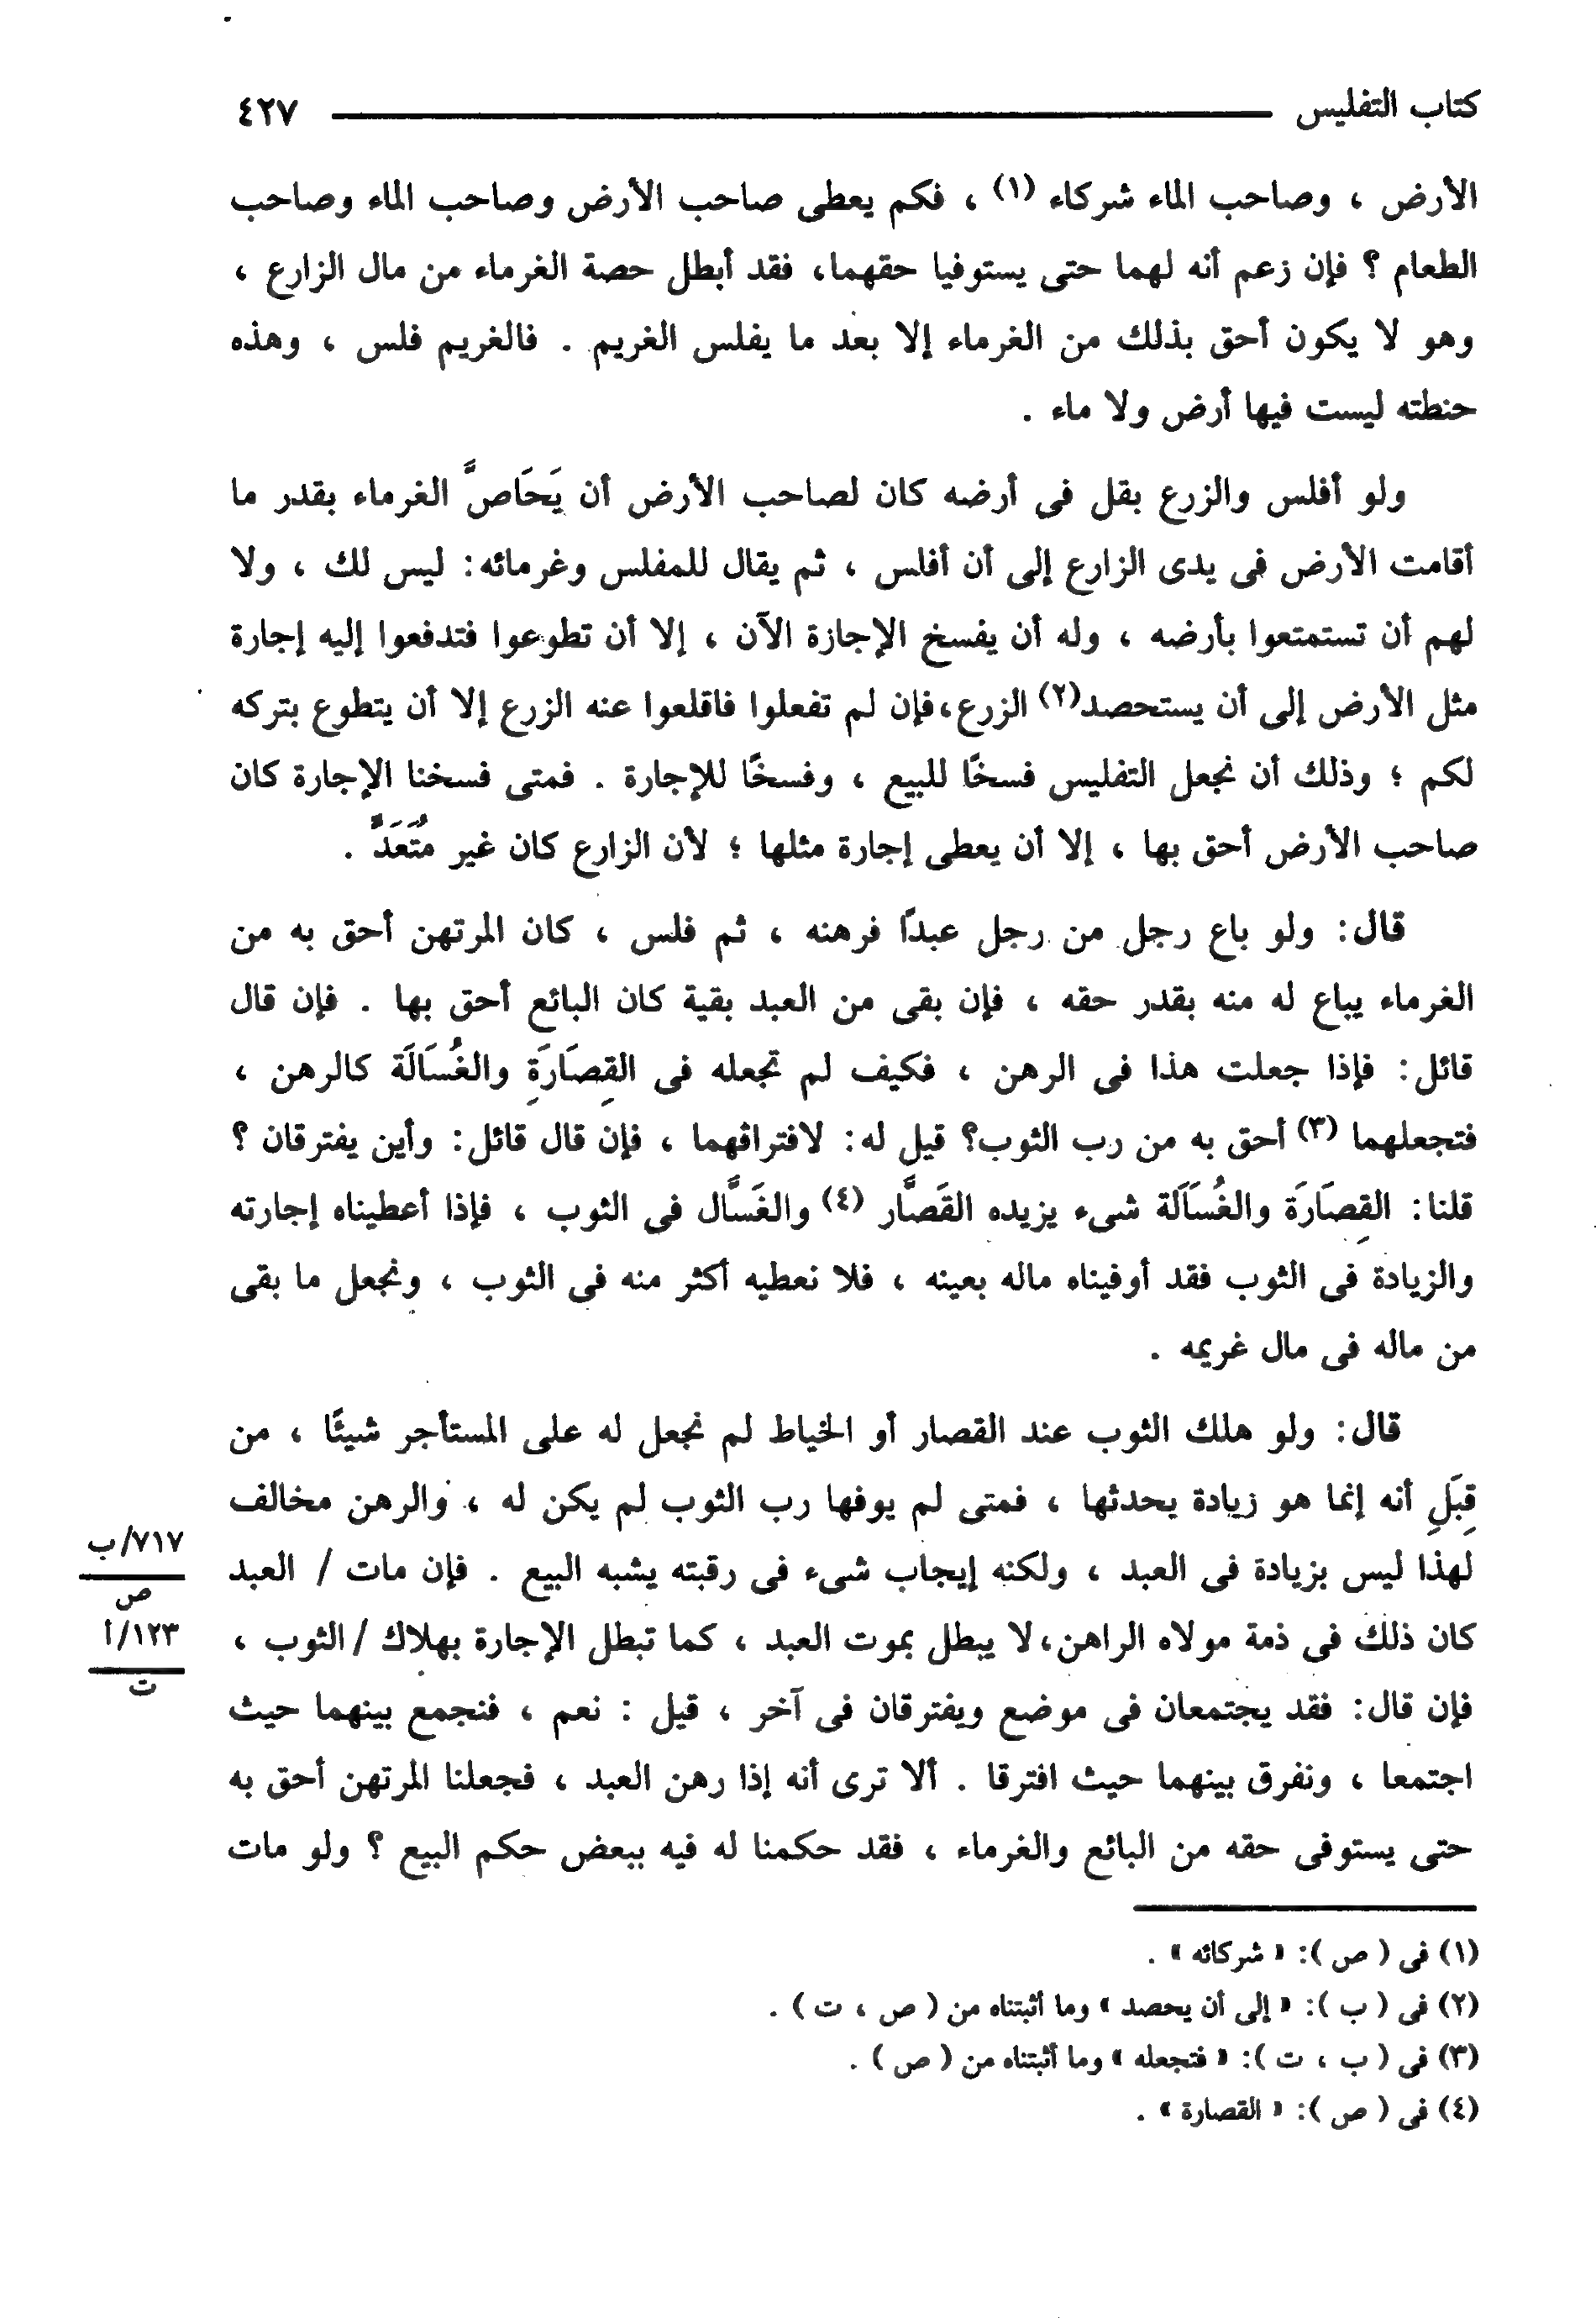 كتاب التفليس ٤٢٧
الأرض ، وصاحب الماء شركاء (١) ، فكم يعطى صاحب الأرض وصاحب الماء وصاحب
الطعام ؟ فإن زعم أنه لهما حتى يستوفيا حقهما، فقد أبطل حصة الغرماء من مال الزارع ،
وهو لا يكون أحق بذلك من الغرماء إلا بعد ما يفلس الغريم . فالغريم فلس ، وهذه
حنطته ليست فيها أرض ولا ماء .
ولو أفلس والزرع بقل فى أرضه كان لصاحب الأرض أن يَحَاصَّ الغرماء بقدر ما
أقامت الأرض فى يدى الزارع إلى أن أفلس ، ثم يقال للمفلس وغرمائه: ليس لك ، ولا
لهم أن تستمتعوا بأرضه ، وله أن يفسخ الإجازة الآن ، إلا أن تطوعوا فتدفعوا إليه إجارة
مثل الأرض إلى أن يستحصد(٢) الزرع،فإن لم تفعلوا فاقلعوا عنه الزرع إلا أن يتطوع بتركه
لكم ؛ وذلك أن نجعل التفليس فسخًا للبيع ، وفسخًا للإجارة . فمتى فسخنا الإجارة كان
صاحب الأرض أحق بها ، إلا أن يعطى إجارة مثلها ؛ لأن الزارع كان غير مُتَعَدٍّ .
قال: ولو باع رجل من رجل عبدًا فرهنه ، ثم فلس ، كان المرتهن أحق به من
الغرماء يباع له منه بقدر حقه ، فإن بقى من العبد بقية كان البائع أحق بها . فإن قال
قائل: فإذا جعلت هذا فى الرهن ، فكيف لم تجعله فى القِصَارَةِ والغُسَالَة كالرهن ،
فتجعلهما (٣) أحق به من رب الثوب؟ قيل له: لافتراقهما ، فإن قال قائل: وأين يفترقان ؟
قلنا: القِصَارَة والغُسَالَة شىء يزيده القَصَّار (٤) والغَسَّال فى الثوب ، فإذا أعطيناه إجارته
والزيادة فى الثوب فقد أوفيناه ماله بعينه ، فلا نعطيه أكثر منه فى الثوب ، ونجعل ما بقى
من ماله فى مال غريمه .
قال: ولو هلك الثوب عند القصار أو الخياط لم نجعل له على المستأجر شيئًا ، من
قِبَلِ أنه إنما هو زيادة يحدثها ، فمتى لم يوفها رب الثوب لم يكن له ، والرهن مخالف
لهذا ليس بزيادة فى العبد ، ولكنه إيجاب شىء فى رقبته يشبه البيع . فإن مات / العبد
كان ذلك فى ذمة مولاه الراهن،لا يبطل بموت العبد ، كما تبطل الإجارة بهلاك / الثوب ،
فإن قال: فقد يجتمعان فى موضع ويفترقان فى آخر ، قيل : نعم ، فنجمع بينهما حيث
اجتمعا ، ونفرق بينهما حيث افترقا . ألا ترى أنه إذا رهن العبد ، فجعلنا المرتهن أحق به
حتى يستوفى حقه من البائع والغرماء ، فقد حكمنا له فيه ببعض حكم البيع ؟ ولو مات
٧١٧/ب
ص
١٢٣/أ
ت
(١) فى ( ص ): « شركائه » .
(٢) فى ( ب ): « إلى أن يحصد » وما أثبتناه من ( ص ، ت ) .
(٣) فى ( ب ، ت ): « فتجعله » وما أثبتناه من ( ص ) .
(٤) فى ( ص ): « القصارة » .